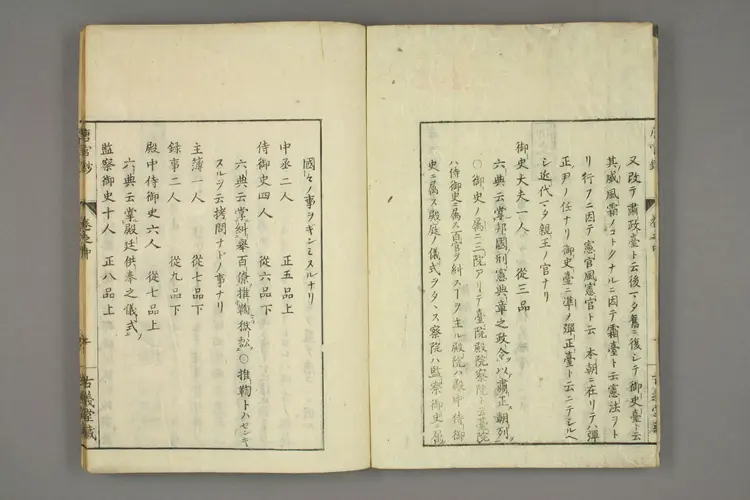 又改テ肅政臺ト云後マタ舊ニ復シテ御史臺ト云
其威風霜ノコトクナルニ因テ霜臺ト云憲法ヲト
リ行フニ因テ憲官風憲官ト云 本朝ニ在リテハ彈
正尹ノ任ナリ御史臺ニ準ノ彈正臺ト云ニテシルヘ
シ近代マタ親王ノ官ナリ
御史大夫一人 從三品
六典云掌邦國刑憲典章之政令以肅正朝列
○御史ノ属ニ三院アリテ臺院殿院察院ト云臺院
ハ侍御史ニ属ス百官ヲ糾スヿヲ主ル殿院ハ殿中侍御
史ニ属ス殿庭ノ儀式ヲタヽス察院ハ監察御史ニ属ス
國々ノ事ヲギンミスルナリ
中丞二人 正五品上
侍御史四人 從六品下
六典云掌糾舉百僚推鞠獄訟○推鞠トハセンギ
スルヲ云拷問ナドノ事ナリ
主簿一人 從七品下
錄事二人 從九品下
殿中侍御史六人 從七品上
六典云掌殿廷供奉之儀式
監察御史十人 正八品上
唐官鈔
古義堂藏